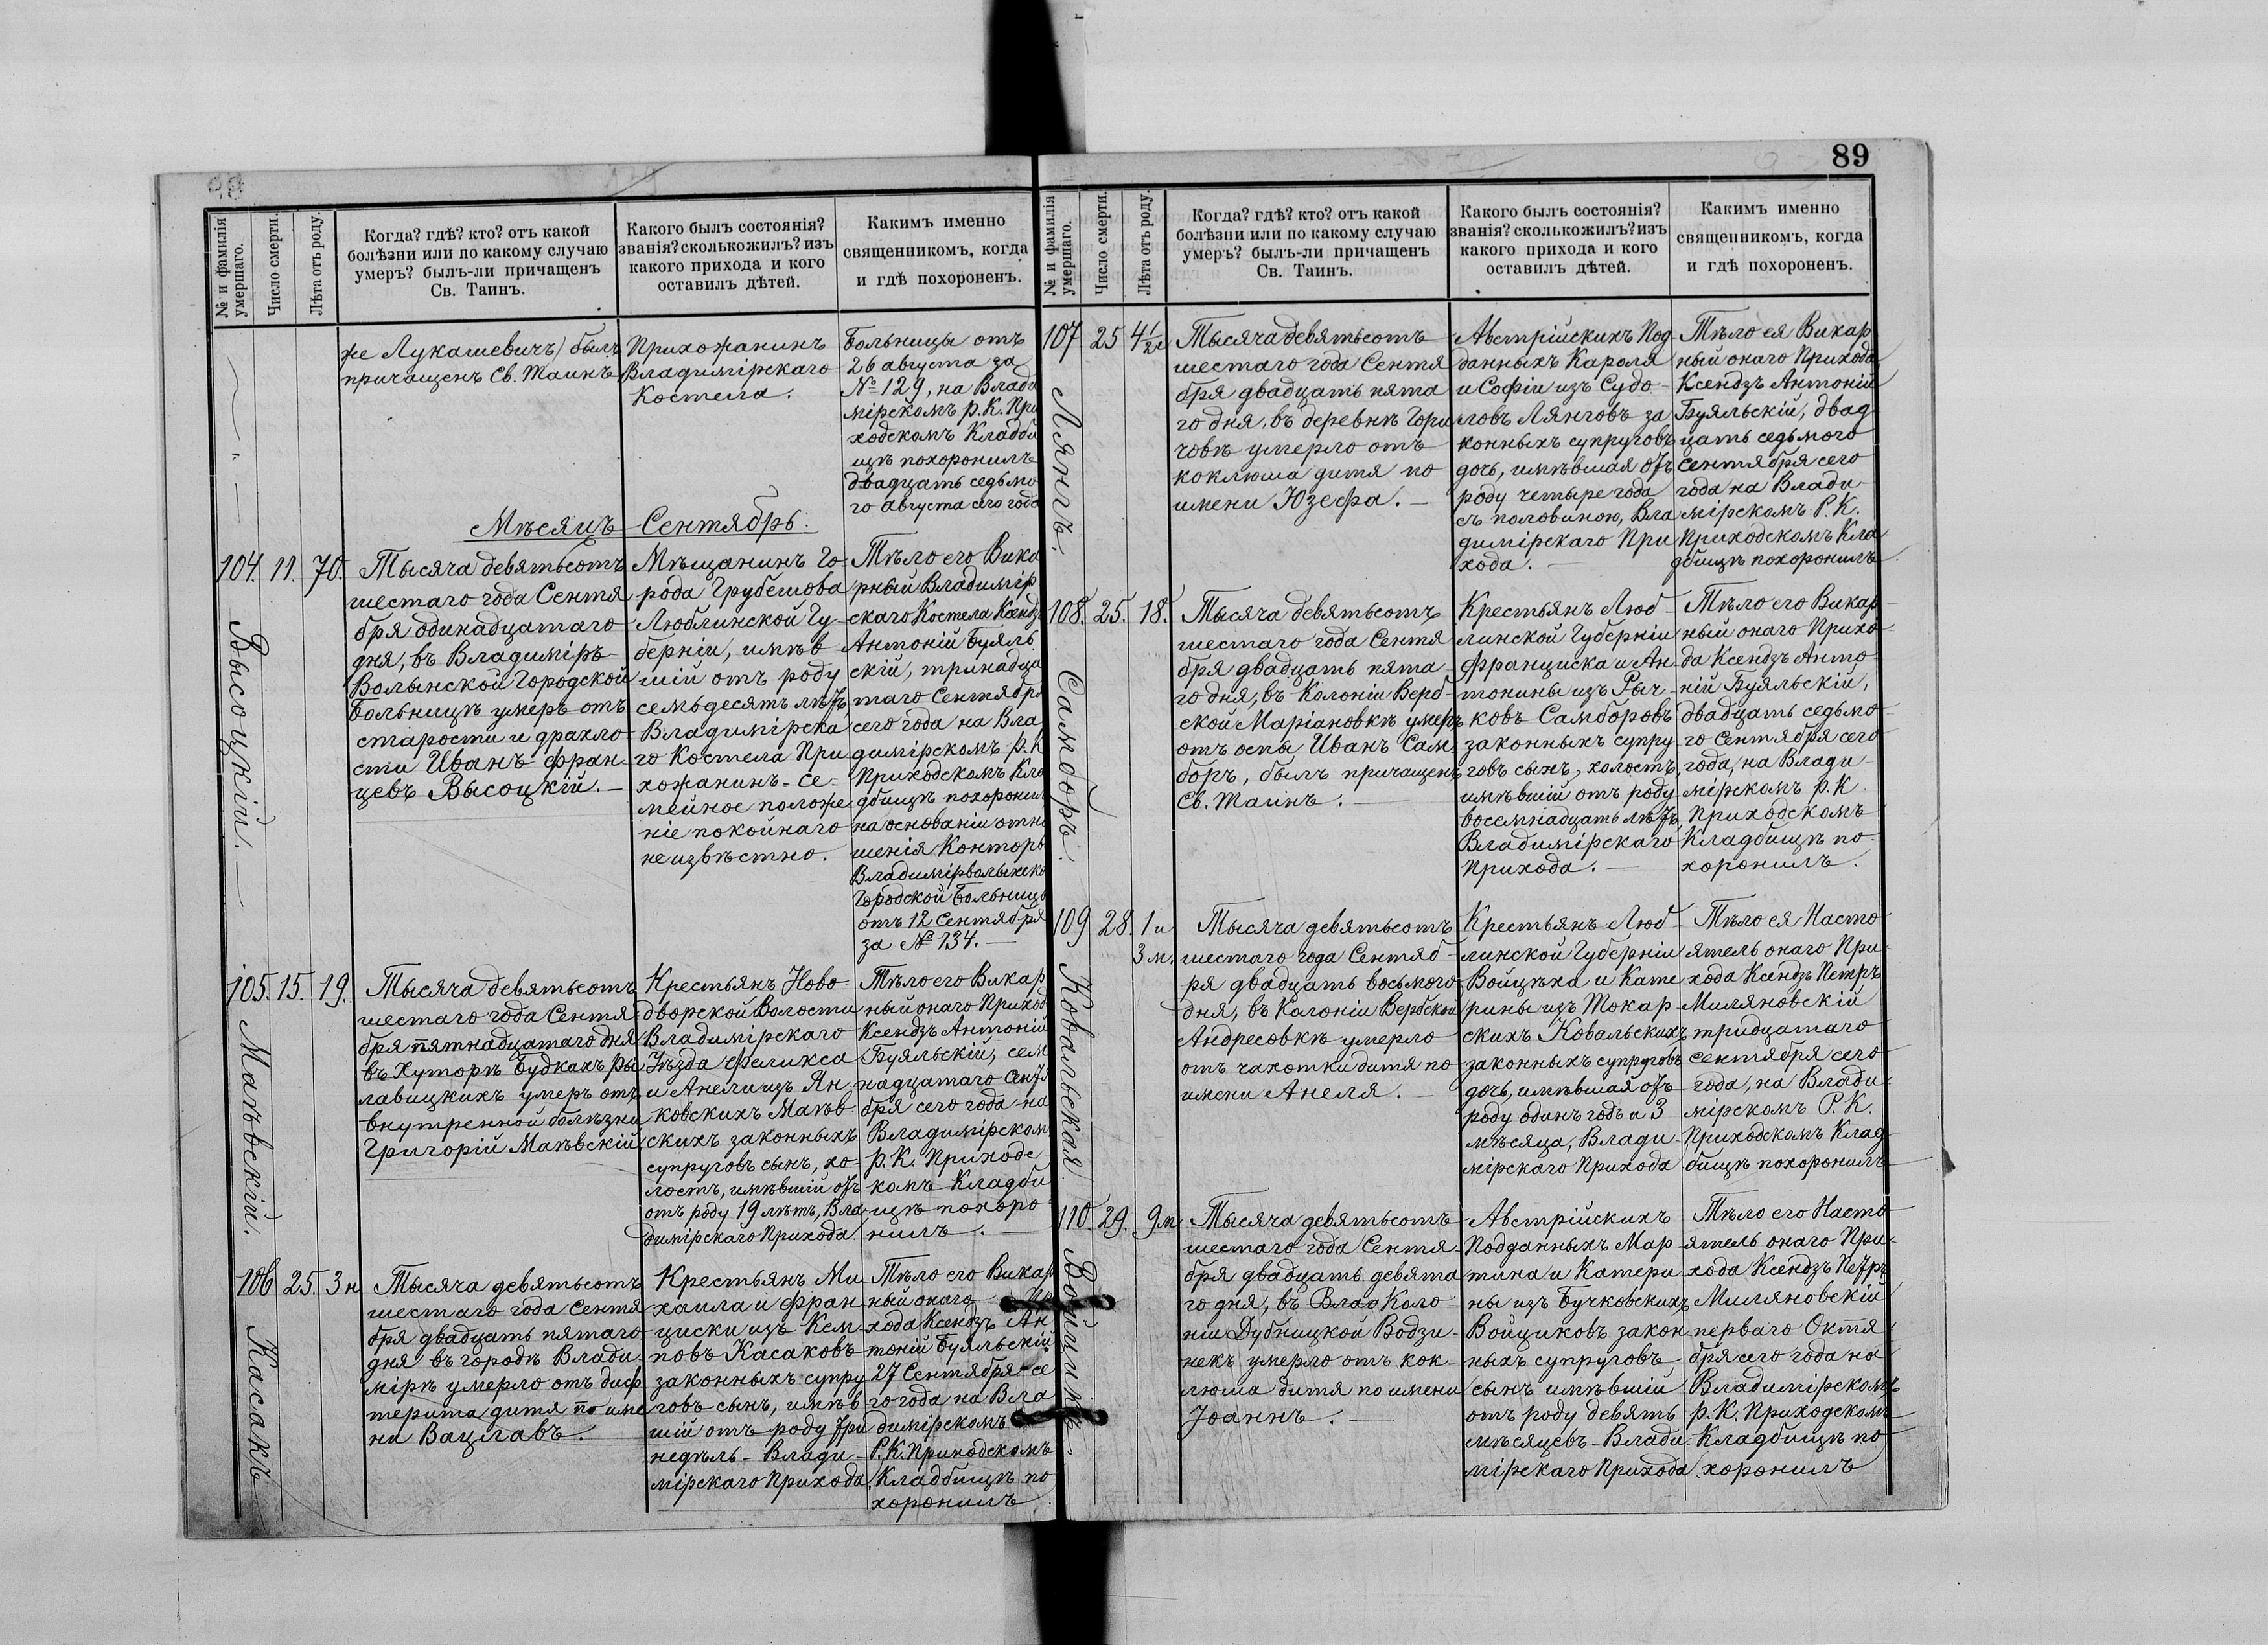 89
№ и фамилія умершаго.
Число смерти.
Лѣта отъ роду.
Когда? гдѣ? кто? отъ какой
болѣзни или по какому случаю
умеръ? былъ-ли причащенъ
Св. Таинъ.
Какого былъ состоянія?
званія? сколько жилъ? изъ
какого прихода и кого
оставилъ дѣтей.
Какимъ именно
священникомъ, когда
и гдѣ похороненъ.
же Лукашевичъ) былъ
причащенъ Св. Таинъ
Прихожанинъ
Владимірскаго
Костела.
Больницы отъ
26 августа за
№ 129, на Влади
мірскомъ р. К. При
ходскомъ Кладби
щѣ похоронилъ
двадцать седьмо
го августа сего года
Мѣсяцъ Сентябрь.
104. 11. 70.
Высоцкій.
Тысяча девятьсотъ
шестаго года Сентя
бря одинадцатаго
дня, въ Владиміръ-
Волынской Городской
Больницѣ умеръ отъ
старости и драхло
сти Иванъ Фран-
цевъ Высоцкій. —
Мѣщанинъ Го-
рода Грубешова
Люблинской Гу-
берніи, имѣв-
шій отъ роду
семьдесятъ лѣтъ
Владимірска
го Костела При
хожанинъ - Се-
мейное положе
ніе покойнаго
неизвѣстно.
Тѣло его Вика
рный Владимір
скаго Костела Ксендз
Антоній Буяль
скій, тринадца
таго Сентября
сего года на Вла
димірскомъ р. К
Приходскомъ Кла
дбищѣ похоронил
на основаніи отно
шенія Конторы
Владимірволынско
Городской Больницы
отъ 12 Сентября
за № 134. —
105. 15. 19.
Маѣвскій.
Тысяча девятьсотъ
шестаго года Сентя
бря пятнадцатаго дня
въ Хуторѣ Будкахъ Ры
лавицкихъ умеръ отъ
внутренной болѣзни
Григорій Маѣвскій
Крестьянъ Ново-
дворской Волости
Владимірскаго
Уѣзда Феликса
и Анели изъ Ян-
ковскихъ Маѣв-
скихъ законныхъ
супруговъ сынъ, хо-
лостъ, имѣвшій отъ
отъ роду 19 лѣтъ, Вла
димірскаго Прихода.
Тѣло его Викар
ный онаго Приход
Ксендзъ Антоній
Буяльскій, сем
надцатаго Сентя
бря сего года на
Владимірском
р. К. Приходс
комъ Кладби
щѣ похоро
нилъ. —
106 25. 3 н
Касакъ
Тысяча девятьсотъ
шестаго года Сентя
бря двадцать пятаго
дня въ городѣ Влади
мірѣ умерло отъ диф
терита дитя по име
ни Вацлавъ. —
Крестьянъ Ми-
хаила и Фран
циски изъ Кем-
повъ Касаковъ
законныхъ супру
говъ сынъ, имѣв
шій отъ роду три
недѣль - Влади-
мірскаго Прихода.
Тѣло его Викар
ный онаго При
хода Ксендзъ Ан
тоній Буяльскій
27 Сентября се
го года на Вла
димірскомъ
Р. К. Приходскомъ
Кладбищѣ по
хоронилъ
№ и фамилія умершаго.
Число смерти.
Лѣта отъ роду.
Когда? гдѣ? кто? отъ какой
болѣзни или по какому случаю
умеръ? былъ-ли причащенъ
Св. Таинъ.
Какого былъ состоянія?
званія? сколько жилъ? изъ
какого прихода и кого
оставилъ дѣтей.
Какимъ именно
священникомъ, когда
и гдѣ похороненъ.
107 25 4 1/2
Лянгъ.
Тысяча девятьсотъ
шестаго года Сентя
бря двадцать пята
го дня, въ деревнѣ Гори
човѣ умерло отъ
коклюша дитя по
имени Юзефа. —
Австрійскихъ Под
данныхъ Кароля
и Софіи изъ Судо-
ловъ Лянговъ за
конныхъ супруговъ
дочь, имѣвшая отъ
роду четыре года
съ половиною, Вла
димірскаго При
хода. —
Тѣло ея Викар
ный онаго Прихода
Ксендзъ Антоній
Буяльскій, двад
цать седьмого
Сентября сего
года на Влади-
мірскомъ Р. К.
Приходскомъ Кла
дбищѣ похоронилъ.
108. 25. 18.
Самборъ.
Тысяча девятьсотъ
шестаго года Сентя
бря двадцать пята
го дня, въ Колоніи Верб-
ской Маріановкѣ умеръ
отъ оспы Иванъ Сам-
боръ, былъ причащенъ
Св. Таинъ. —
Крестьянъ Люб-
линской Губерніи
Франциска и Ан-
тонины изъ Рыч-
ковъ Самборовъ
законныхъ супру
говъ сынъ, холостъ,
имѣвшій отъ роду
восемнадцать лѣтъ,
Владимірскаго
Прихода. —
Тѣло его Викар-
ный онаго Прихо-
да Ксендзъ Анто-
ній Буяльскій,
двадцать седьмо-
го Сентября сего
года, на Влади-
мірскомъ р. К
Приходскомъ
Кладбищѣ по-
хоронилъ.
109 28. 1 и
3 м.
Ковальская
Тысяча девятьсотъ
шестаго года Сентяб-
ря двадцать восьмого
дня, въ Колоніи Вербской
Андресовкѣ умерло
отъ чахотки дитя по
имени Анеля. —
Крестьянъ Люб-
линской Губерніи
Войцѣха и Кате
рины изъ Токар-
скихъ Ковальскихъ
законныхъ супруговъ
дочь, имѣвшая отъ
роду одинъ годъ и 3
мѣсяца, Влади-
мірскаго Прихода
Тѣло ея Насто-
ятель онаго При-
хода Ксендзъ Петръ
Миляновскій
тридцатаго
Сентября сего
года, на Влади-
мірскомъ Р. К.
Приходскомъ Клад-
бищѣ похоронилъ
110 29. 9 м
Войцикъ
Тысяча девятьсотъ
шестаго года Сентя-
бря двадцать девята
го дня, въ Влад Коло-
ніи Дубницкой Водзи-
некъ умерло отъ кок-
люша дитя по имени
Іоаннъ. —
Австрійскихъ
Подданныхъ Мар-
тина и Катери
ны изъ Бучковскихъ
Войциковъ закон-
ныхъ супруговъ
сынъ имѣвшій
отъ роду девять
мѣсяцевъ - Влади-
мірскаго Прихода
Тѣло его Насто
ятель онаго При-
хода Ксендзъ Петръ
Миляновскій
перваго Октя
бря сего года на
Владимірскомъ
р. К. Приходскомъ
Кладбищѣ по
хоронилъ